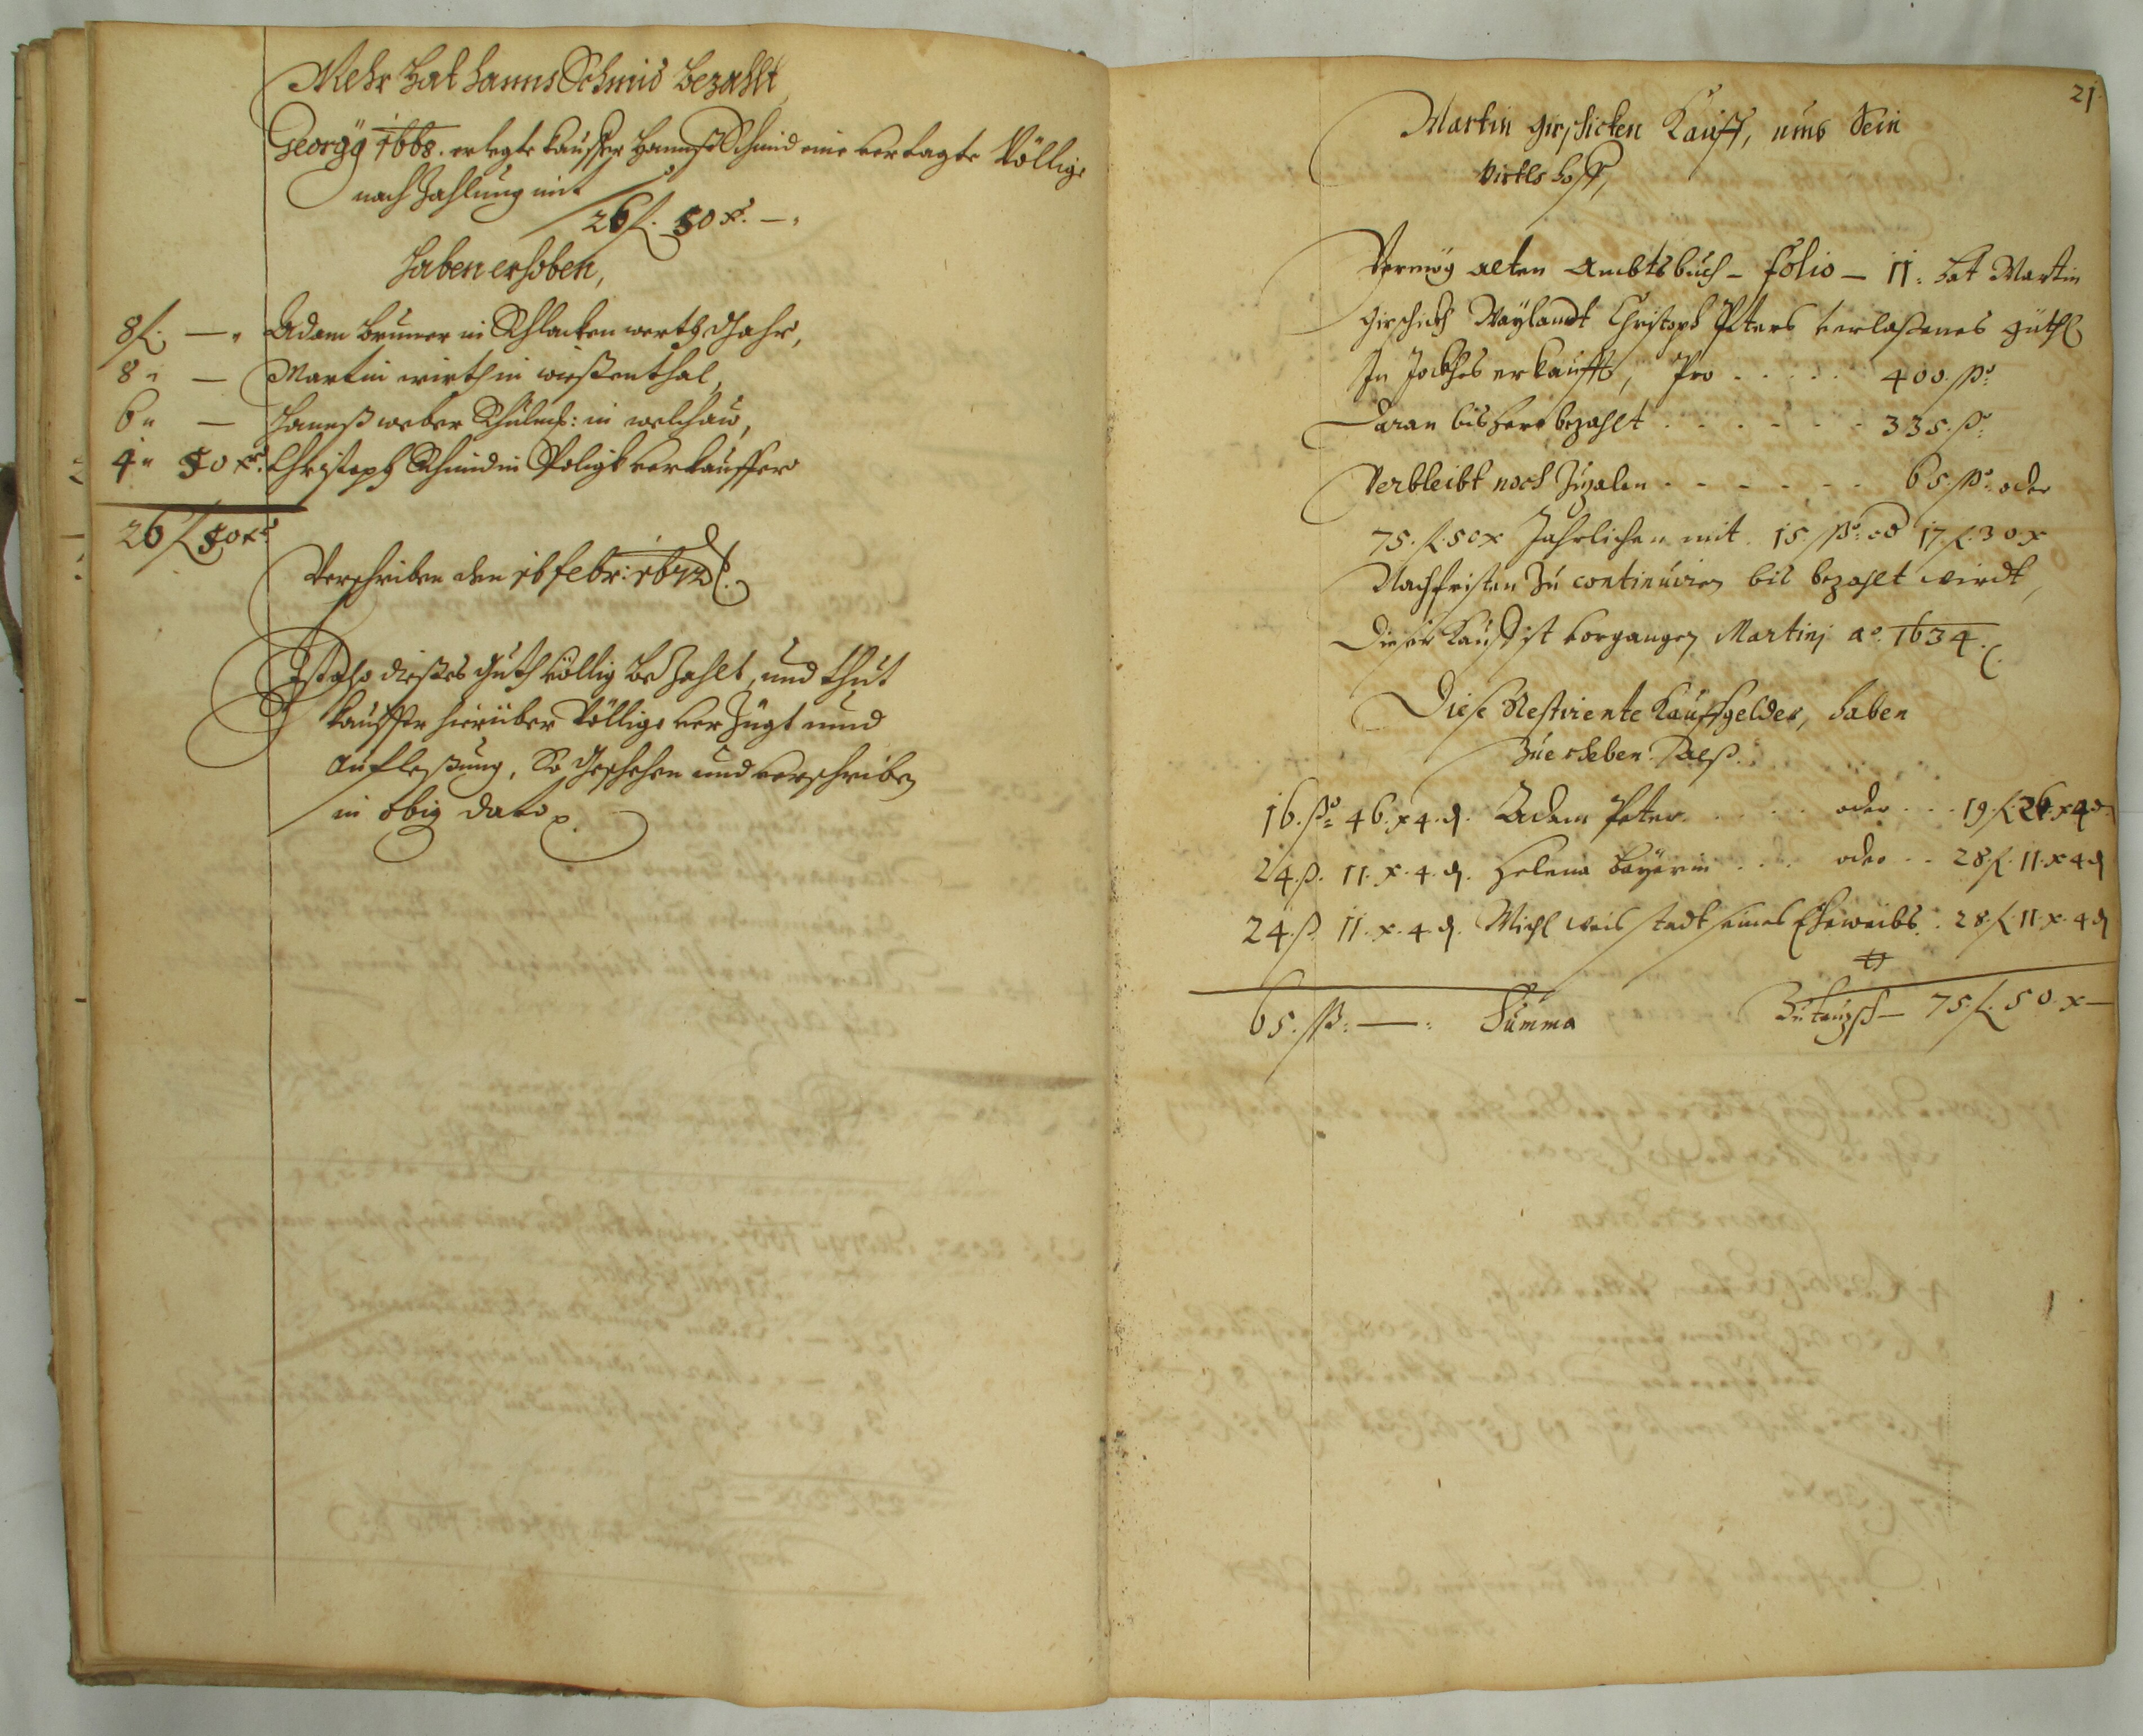 Mehr hat Hanns Schmid bezahlt,
Georgÿ 1668. erlegte Kauffer Hannß Schmid eine vertagte Völlige
nach Zahlung mit
26 f. 50 x. —.
Haben erhoben,
8 f. — " Adam Bruner in Schlackenwerth
8 " — Martin Wirth in Wießenthal,
6 " — Hannß Weber Schulmst: in Welchau,
4 " 50 xr. Christoph Schmid in Verkauffer
26 f 50 xr
Verschriben den 16 Febr: 1672.
Ist also dießes Guth völlig bezahlt, und thut
Kauffer hierüber Völlige Verzügt unnd
Aufleßung, So Geschehen und verschriben
in obig dato
21.
Martin Girschicken Kauff, umb Sein
Virtls Hoff,
Vermög alten Ambtsbuch - folio - 11: hat Martin
Girschickh Waylandt Christoph Peters verlaßenes Güthl
In Jockhes erkaufft, pro . . . . . 400. ßo:
Daran bishero bezahlt . . . . . . 335. ß:
Verbleibt noch Zuzalen - - - - - - 65. ßo: oder
75. f. 50 x Jahrlichen mit 15. ßo: od 17 f. 30 x
Nachfristen Zu continuiren bis bezahlt wirdt,
Dieser Kauff ist vorgangen Martinj ao. 1634.
Diese Restirente Kauffgelder, haben
Zuerheben Alß.
16. ßo: 46. x 4. d. Adam Peter . . . . . oder . . . 19. f. 26. x 4 d.
24. ß. 11. x. 4. d. Helena Bayerin . . . oder . . 28 f. 11. x 4 d
24. ß. 11. x. 4. d. Michl Weis stadt seines Eheweibs . . 28 f. 11. x. 4 d
65. ßo: — : Summa — 75. f. 50. x —